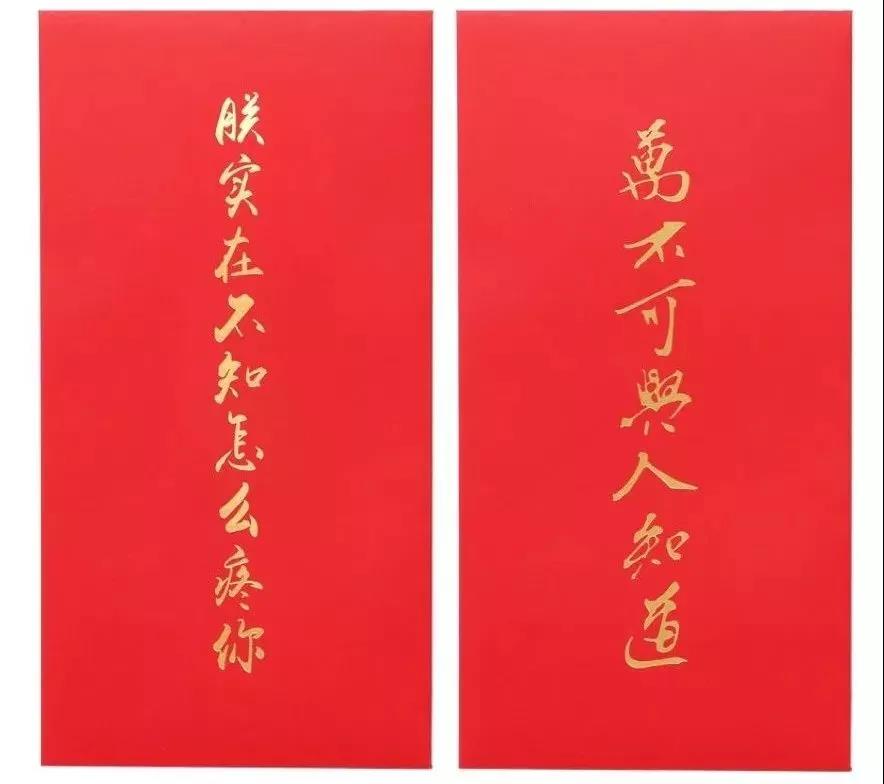 朕实在不知怎么疼你
萬不可與人知道